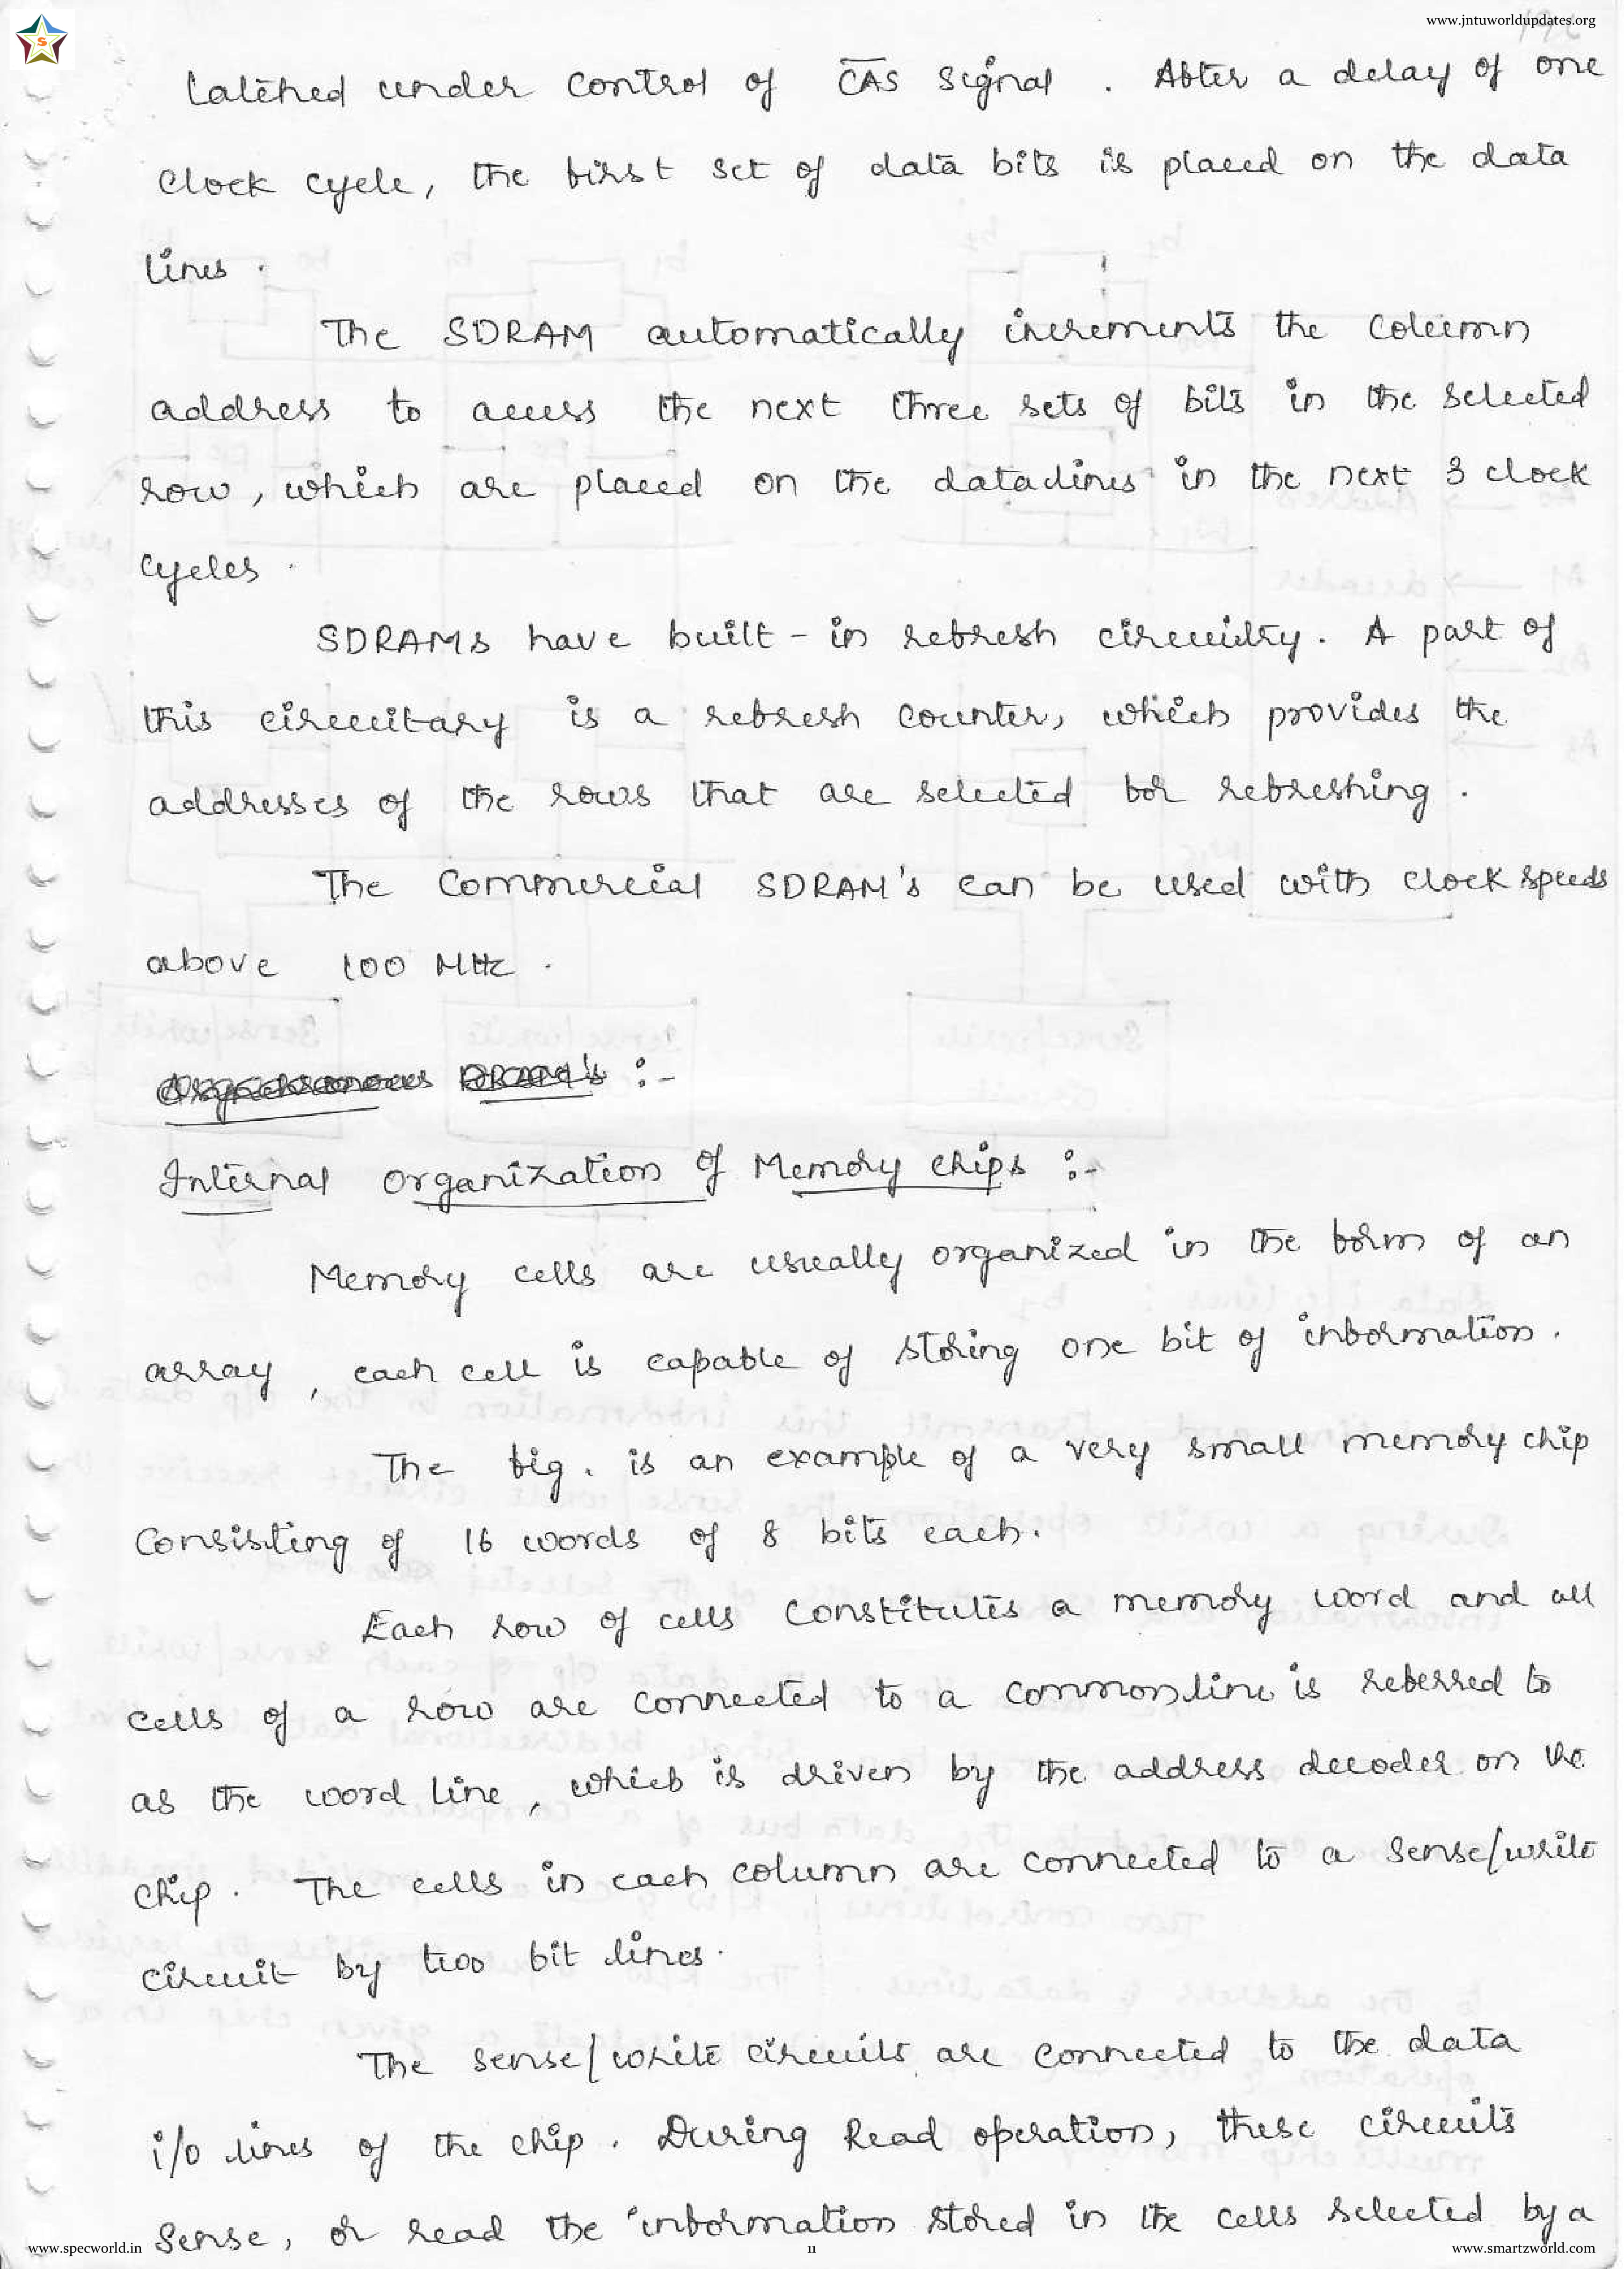 www.jntuworldupdates.org
S
Latched under control of C̅A̅S̅ signal . After a delay of one
clock cycle, the first set of data bits is placed on the data
lines .
The SDRAM automatically increments the column
address to access the next three sets of bits in the selected
row, which are placed on the data lines in the next 3 clock
cycles .
SDRAMs have built-in refresh circuitry. A part of
this circuitary is a refresh counter, which provides the
addresses of the rows that are selected for refreshing .
The Commercial SDRAM's can be used with clock speeds
above 100 MHz .
Asynchronous DRAM's :-
Internal organization of Memory chips :-
Memory cells are usually organized in the form of an
array , each cell is capable of storing one bit of information .
The fig . is an example of a very small memory chip
consisting of 16 words of 8 bits each.
Each row of cells constitutes a memory word and all
cells of a row are connected to a common line is referred to
as the word line , which is driven by the address decoder on the
chip . The cells in each column are connected to a sense/write
circuit by two bit lines .
The sense/write circuits are connected to the data
i/o lines of the chip . During Read operation, these circuits
sense, or read the information stored in the cells selected by a
www.specworld.in
11
www.smartzworld.com